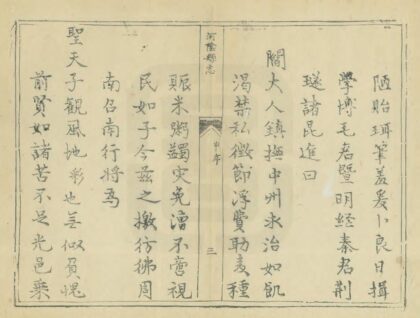 陋貽珥筆羞爰卜良日揖
學博毛君暨明經秦君荆
璲諸昆進曰
閻大人鎮撫中州求治如飢
渴禁私徵節浮費助麦種
河陰縣志
序
三
賑米粥蠲灾免漕不啻視
民如子今兹之檄彷彿周
南召南行將為
聖天子觀風地彩也似負愧
前賢如諸苦不足光邑乘